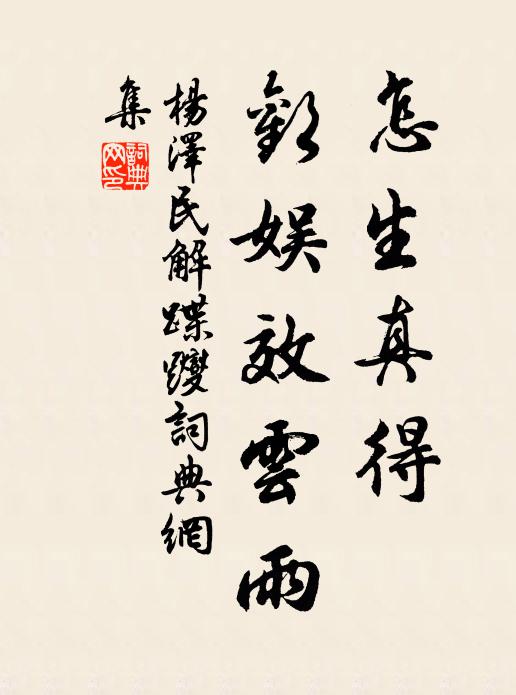 怎生真得
歡娛效雲雨
楊澤民解蹀躞詞典網
集
詞典網印